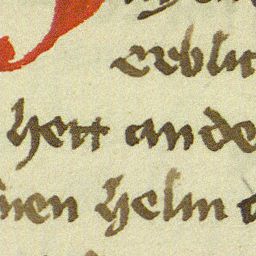 erblic
hett an de
nen helm d